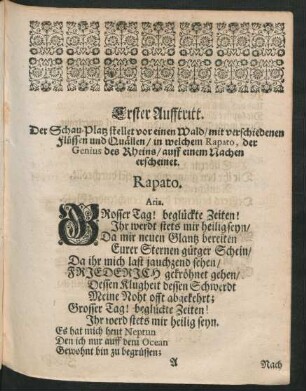 Erster Aufftritt.
Der Schau-Platz stellet vor einen Wald/ mit verschiedenen
Flüssen und Quällen/ in welchem Rapato, der
Genius des Rheins/ auff einem Nachen
erscheinet.
Rapato.
Aria.
GRosser Tag! beglückte Zeiten!
Ihr werdt stets mir heilig seyn/
Da mir neuen Glantz bereiten
Eurer Sternen gütger Schein/
Da ihr mich last jauchzend sehen/
FRIEDERICH gekröhnet gehen/
Dessen Klugheit dessen Schwerdt
Meine Noht offt abgekehrt;
Grosser Tag! beglückte Zeiten!
Ihr werd stets mir heilig seyn.
Es hat mich heut Neptun
Den ich nur auff dem Ocean
Gewohnt bin zu begrüssen;
A
Nach